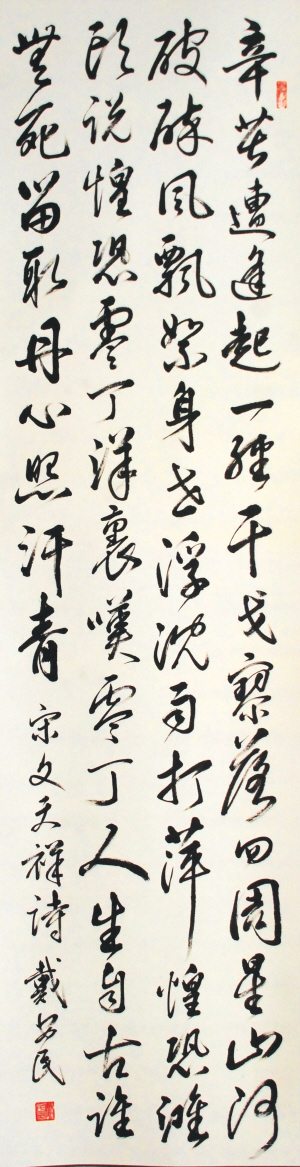 辛苦遭逢起一經干戈寥落四周星山河
破碎風飄絮身世浮沈雨打萍惶恐灘
頭說惶恐零丁洋裏嘆零丁人生自古誰
無死留取丹心照汗青 宋文天祥詩 戴安民